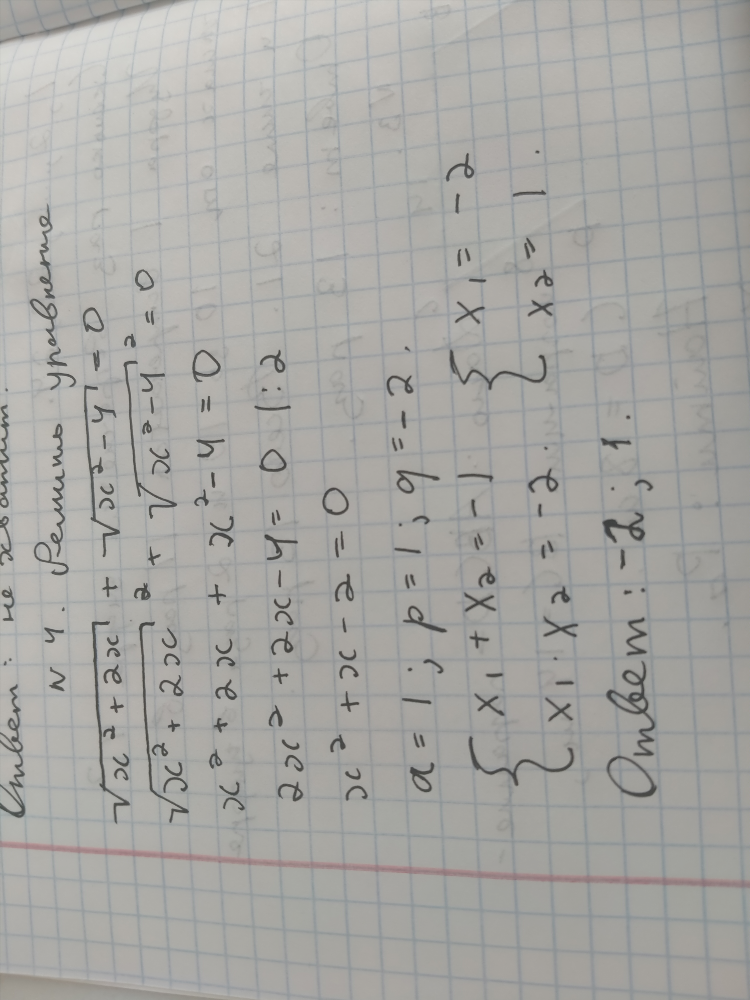 Ответ: не хватит.
N 4. Решить уравнение
√x²+2x + √x²-4 = 0
√x²+2x² + √x²-4² = 0
x²+2x + x²-4 = 0
2x²+2x-4 = 0 |:2
x²+x-2 = 0
a=1; p=1; q=-2.
{ x1+x2 = -1 { x1 = -2
x1·x2 = -2. x2 = 1.
Ответ: -2; 1.